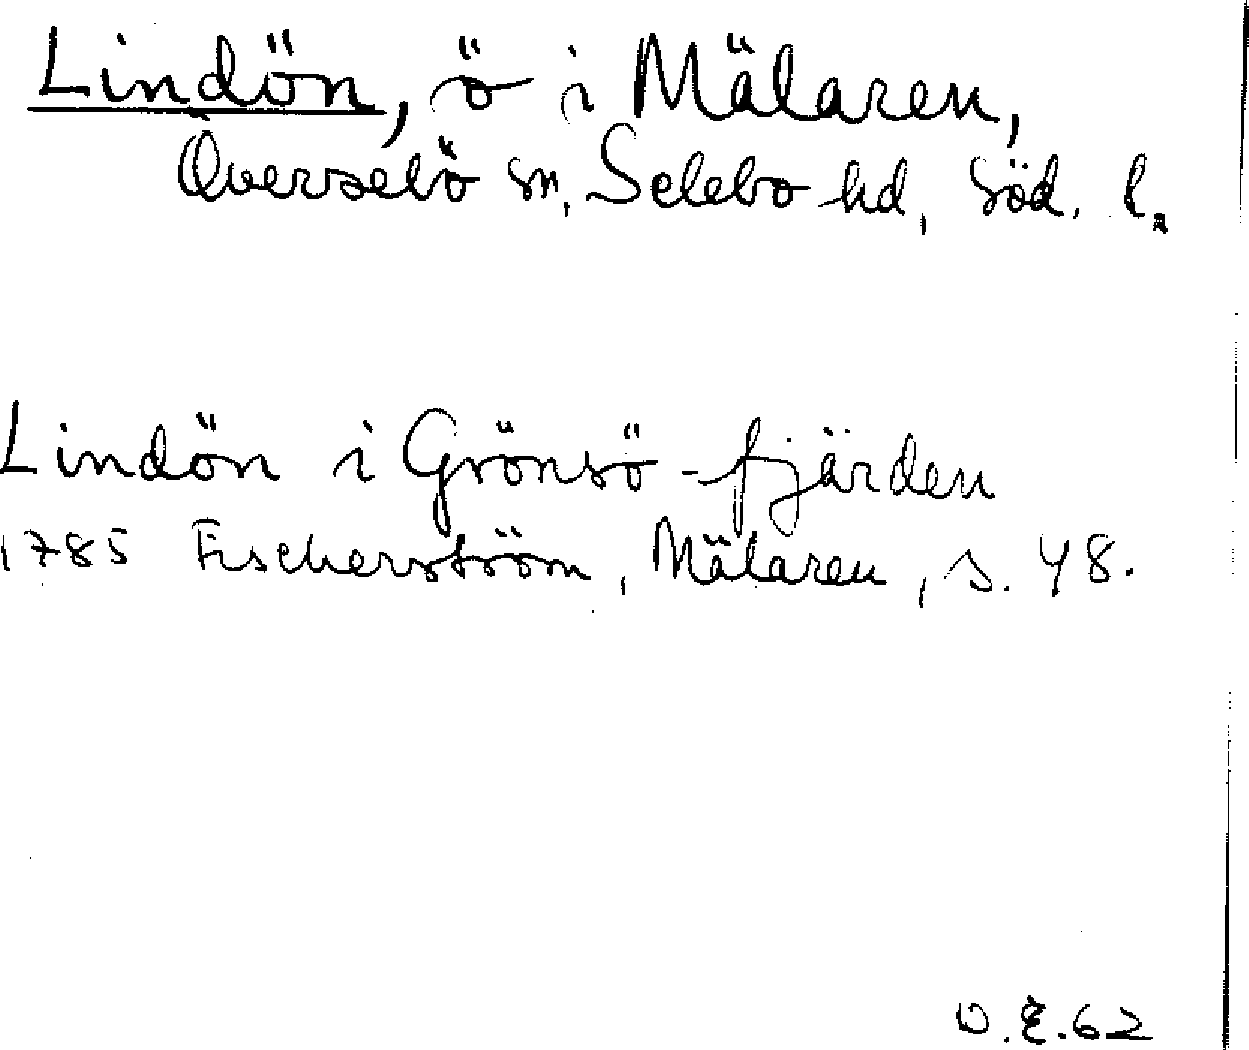 Lindön, ö i Mälaren,
Överselö sn, Selebo hd, Söd. l.
Lindön i Grönsö-fjärden
1785 Fischerström, Mälaren, s. 48.
O.E.62